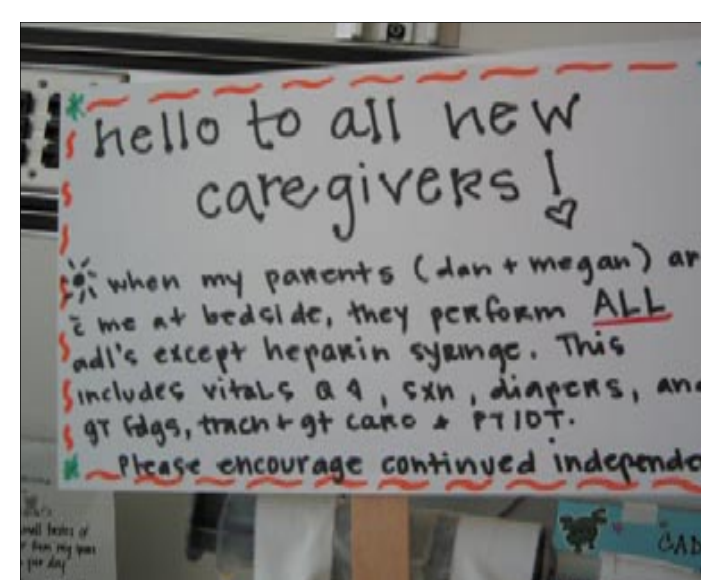 hello to all new
caregivers!
when my parents (dan + megan) ar
c̄ me at bedside, they perform ALL
adl's except heparin syringe. This
includes vitals Q4, sxn, diapers, an
gT fdgs, trach + gt care + PT/OT.
Please encourage continued independe
small tastes of
from my
per day
CAD